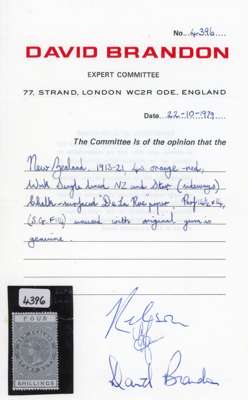 No. 4396
DAVID BRANDON
EXPERT COMMITTEE
77, STRAND, LONDON WC2R ODE, ENGLAND
Date 22-10-1979
The Committee is of the opinion that the
New Zealand, 1913-21, 4s orange-red,
With Single lined NZ and Star (sideways)
Chalk-surfaced "De La Rue" paper, Perf 14½ x 14,
(S.G. F114) unused with original gum is
genuine.
4396
FOUR
SHILLINGS
David Brandon